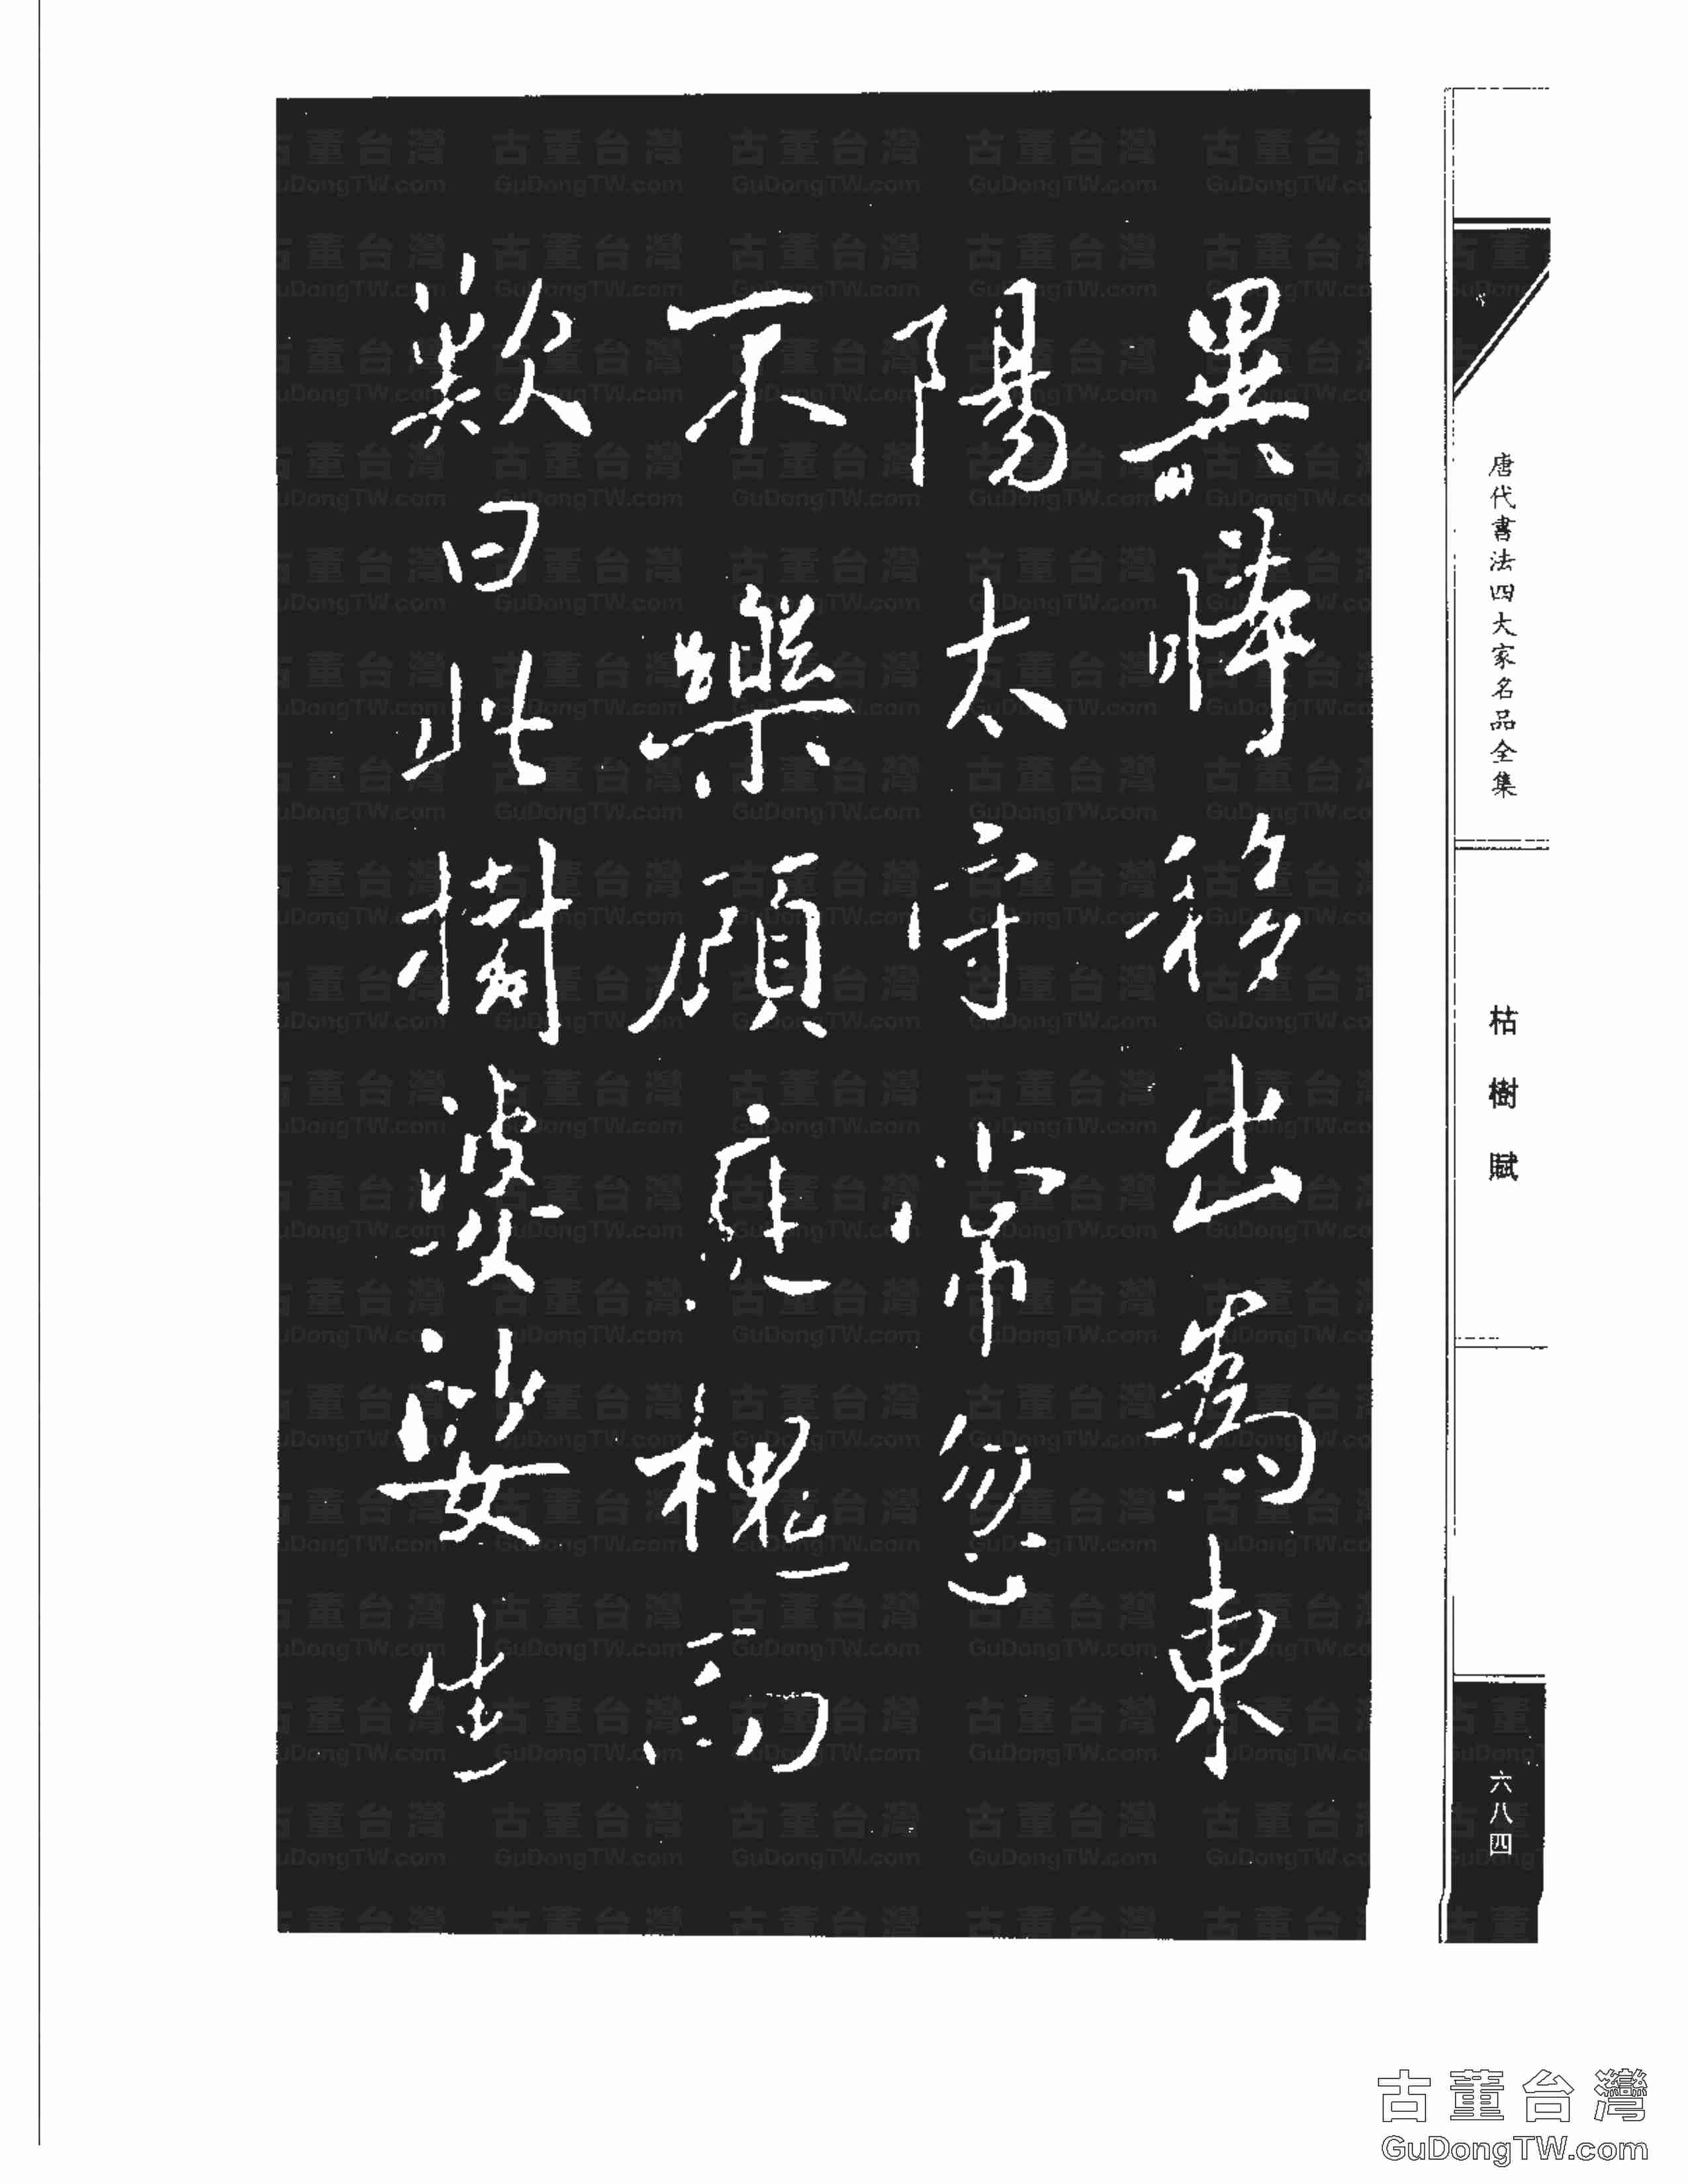 異時移出為東
陽太守常忽
不樂顧庭槐而
歎曰此樹婆娑生
唐代書法四大家名品全集
枯樹賦
六八四
古董台灣
GuDongTW.com